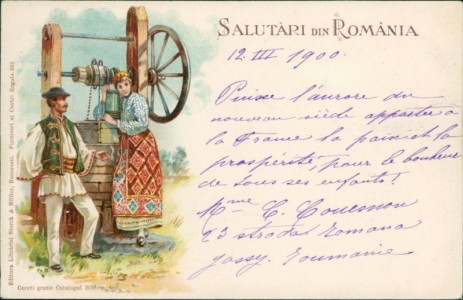 SALUTĂRI DIN ROMÂNIA
12. III 1900.
Puisse l'aurore du
nouveau siècle apporter à
la France la paix et la
prospérité, pour le bonheur
de tous ses enfants!
Mme C. Couesnon
23 strada Romana
Jassy. Roumanie
Editura Librăriei Storck & Müller, Bucuresti,
Cereti gratis Catalogul